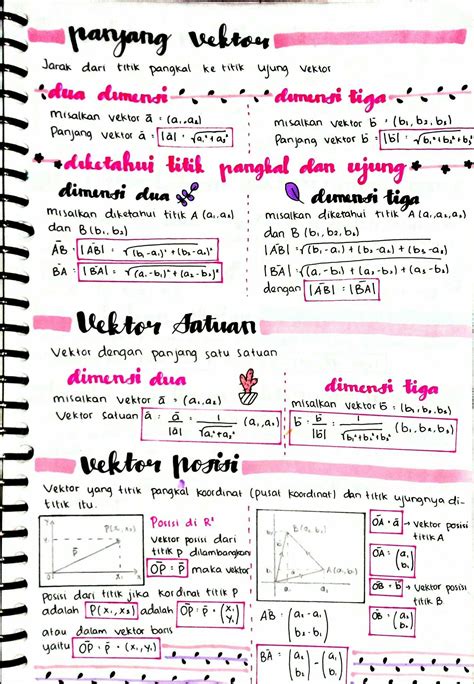 panjang vektor
Jarak dari titik pangkal ke titik ujung vektor
dua dimensi
misalkan vektor ā = (a₁,a₂)
Panjang vektor ā = |ā| = √a₁²+a₂²
dimensi tiga
misalkan vektor b̄ = (b₁, b₂, b₃)
Panjang vektor b̄ = |b̄| = √b₁²+b₂²+b₃²
diketahui titik pangkal dan ujung
dimensi dua
misalkan diketahui titik A (a₁,a₂)
dan B (b₁, b₂)
AB̄ = |AB̄| = √(b₁-a₁)²+(b₂-a₂)²
BĀ = |BĀ| = √(a₁-b₁)²+(a₂-b₂)²
dimensi tiga
misalkan diketahui titik A (a₁,a₂,a₃)
dan B (b₁, b₂, b₃)
|AB̄| = √(b₁-a₁)+(b₂-a₂)+(b₃-a₃)
|BĀ| = √(a₁-b₁)+(a₂-b₂)+(a₃-b₃)
dengan |AB̄| = |BĀ|
Vektor Satuan
Vektor dengan panjang satu satuan
dimensi dua
misalkan vektor ā = (a₁,a₂)
Vektor satuan ā = ā/|ā| = 1/√a₁²+a₂² (a₁,a₂)
dimensi tiga
misalkan vektor b̄ = (b₁, b₂, b₃)
b̄ = b̄/|b̄| = 1/√b₁²+b₂²+b₃² (b₁, b₂, b₃)
Vektor Posisi
Vektor yang titik pangkal koordinat (pusat koordinat) dan titik ujungnya di-
titik itu.
Y
P(x₁, x₂)
p̄
X
Posisi di R²
vektor posisi dari
titik P dilambangkan
OP̄ = P̄ maka vektor
Posisi dari titik jika kordinat titik P
adalah P(x₁, x₂) adalah OP̄ = p̄ = (x₁ y₁)
atau dalam vektor baris
yaitu OP̄ = p̄ = (x₁, y₁)
B(b₁, b₂)
A(a₁, b₁)
AB̄ = (a₂ - a₁ b₂ - b₁)
BĀ = (a₂ b₂) - (a₁ b₁)
OĀ = ā → vektor posisi
titik A
OĀ = (a₁ b₁)
OB̄ = b̄ → vektor posisi
titik B
OB̄ = (a₂ b₂)